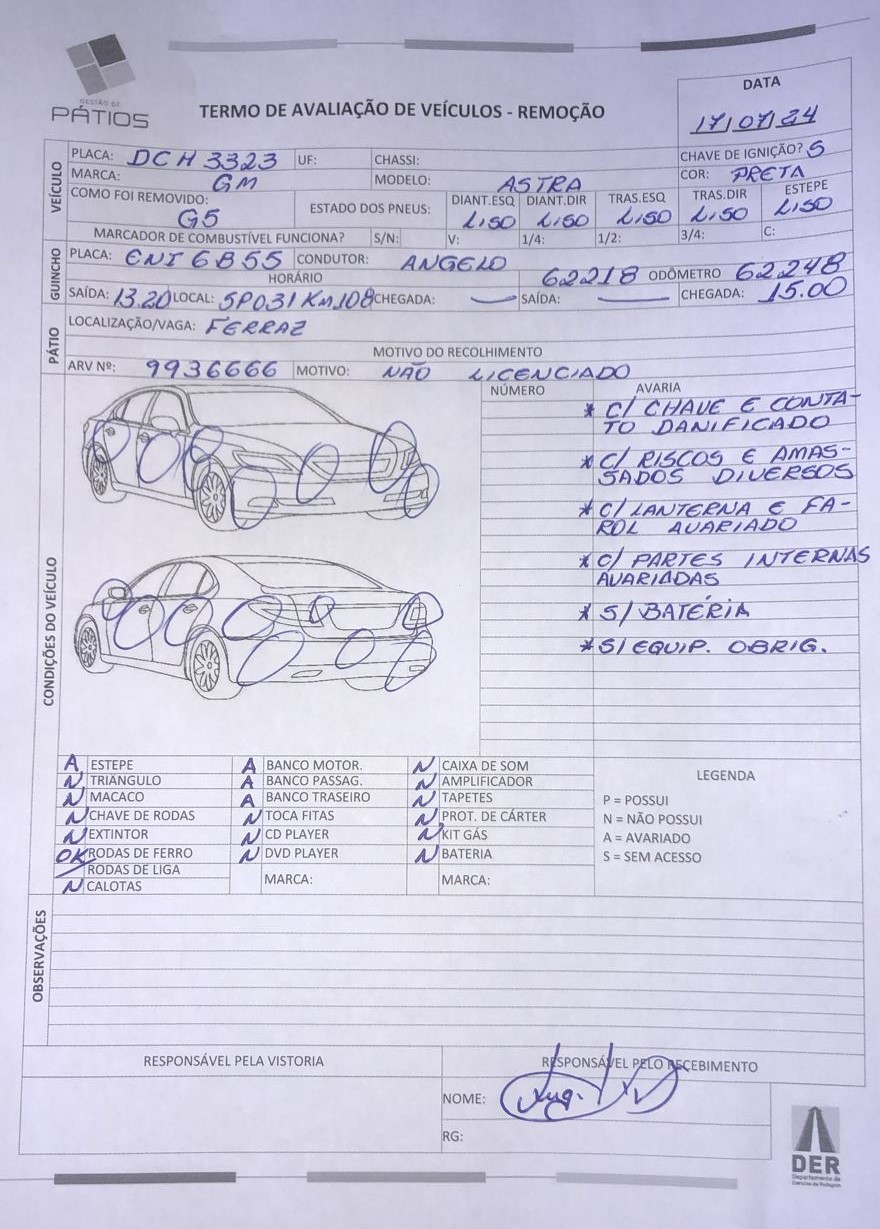 GESTÃO DE
PÁTIOS
TERMO DE AVALIAÇÃO DE VEÍCULOS - REMOÇÃO
DATA
17/07/24
VEÍCULO
PLACA: DCH 3323 UF: CHASSI: CHAVE DE IGNIÇÃO? S
MARCA: GM MODELO: ASTRA COR: PRETA
COMO FOI REMOVIDO: G5 ESTADO DOS PNEUS: DIANT.ESQ LISO DIANT.DIR LISO TRAS.ESQ LISO TRAS.DIR LISO ESTEPE LISO
MARCADOR DE COMBUSTÍVEL FUNCIONA? S/N: V: 1/4: 1/2: 3/4: C:
GUINCHO
PLACA: ENI 6B55 CONDUTOR: ANGELO
HORÁRIO 62218 ODÔMETRO 62248
SAÍDA: 13.20 LOCAL: SP031 KM108 CHEGADA: — SAÍDA: — CHEGADA: 15.00
PÁTIO
LOCALIZAÇÃO/VAGA: FERRAZ
MOTIVO DO RECOLHIMENTO
ARV Nº: 9936666 MOTIVO: NÃO LICENCIADO
CONDIÇÕES DO VEÍCULO
NÚMERO AVARIA
* C/ CHAVE E CONTA-
TO DANIFICADO
* C/ RISCOS E AMAS-
SADOS DIVERSOS
* C/ LANTERNA E FA-
ROL AVARIADO
* C/ PARTES INTERNAS
AVARIADAS
* S/ BATERIA
* S/ EQUIP. OBRIG.
A ESTEPE A BANCO MOTOR. N CAIXA DE SOM
N TRIÂNGULO A BANCO PASSAG. N AMPLIFICADOR
N MACACO A BANCO TRASEIRO N TAPETES
N CHAVE DE RODAS N TOCA FITAS N PROT. DE CÁRTER
N EXTINTOR N CD PLAYER N KIT GÁS
OK RODAS DE FERRO N DVD PLAYER N BATERIA
RODAS DE LIGA MARCA: MARCA:
N CALOTAS
LEGENDA
P = POSSUI
N = NÃO POSSUI
A = AVARIADO
S = SEM ACESSO
OBSERVAÇÕES
RESPONSÁVEL PELA VISTORIA RESPONSÁVEL PELO RECEBIMENTO
NOME:
RG:
DER
Departamento de
Estradas de Rodagem